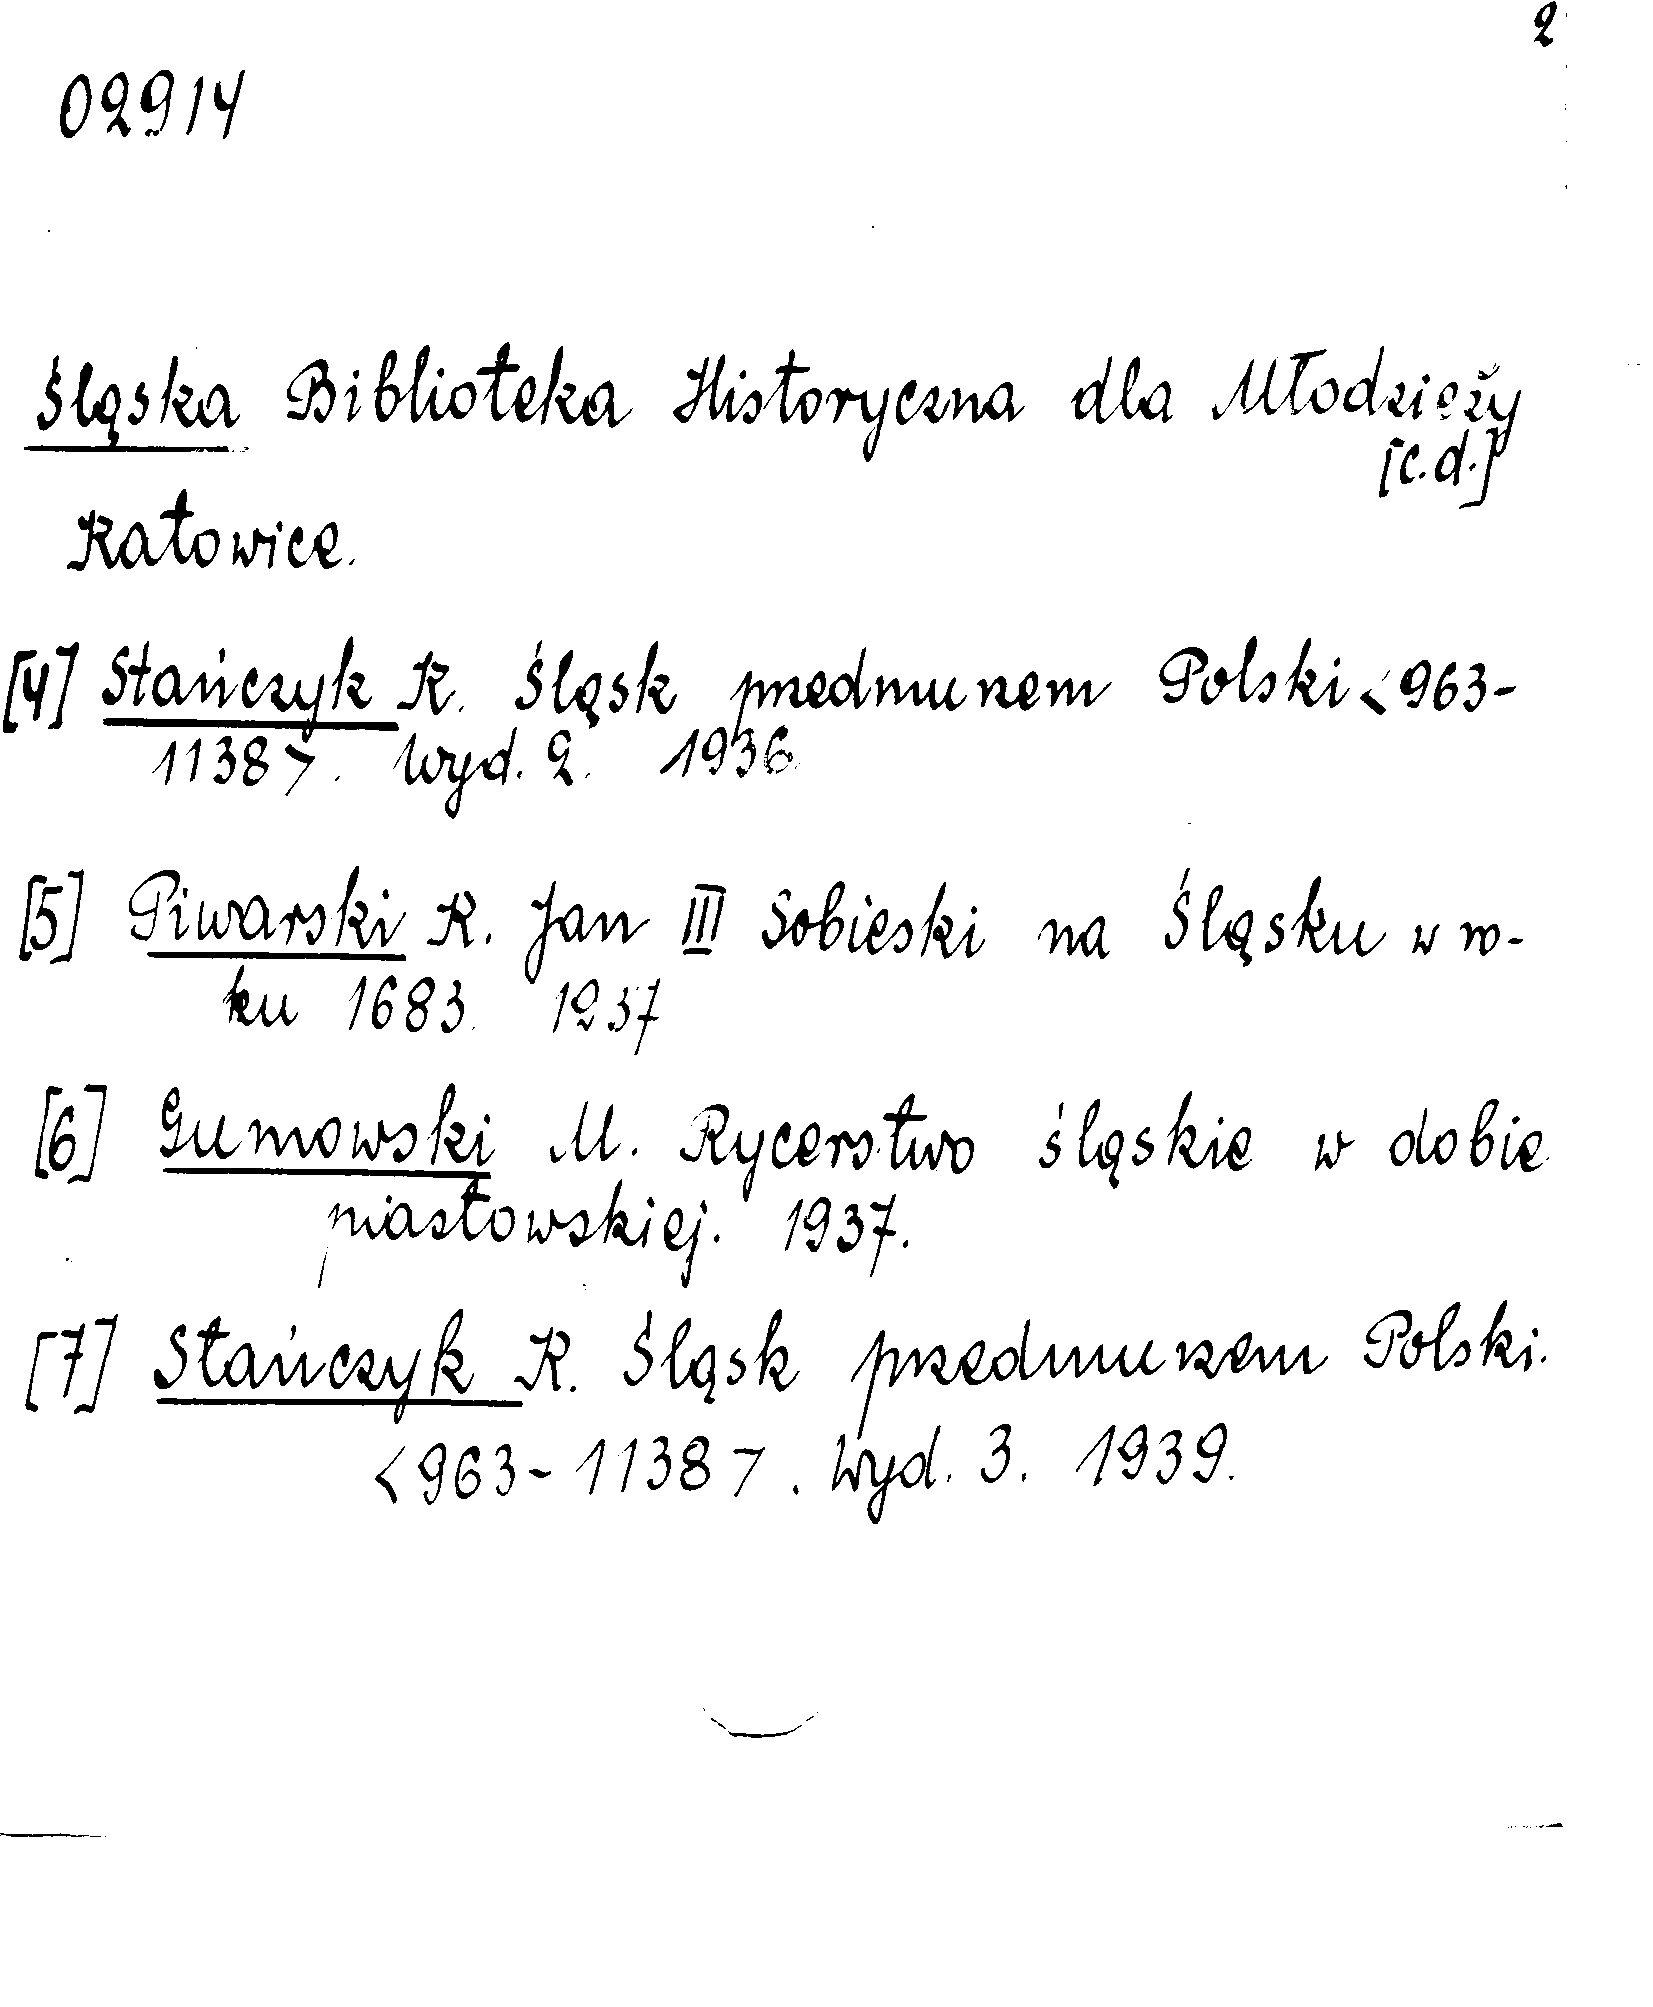 2
02914
Śląska Biblioteka Historyczna dla Młodzieży
[c.d.]
Katowice.
[4] Stańczyk K. Śląsk przedmurzem Polski <963-
1138>. Wyd. 2. 1936
[5] Piwarski K. Jan III Sobieski na Śląsku w ro-
ku 1683. 1937
[6] Gumowski M. Rycerstwo śląskie w dobie
piastowskiej. 1937.
[7] Stańczyk K. Śląsk przedmurzem Polski.
<963-1138>. Wyd. 3. 1939.